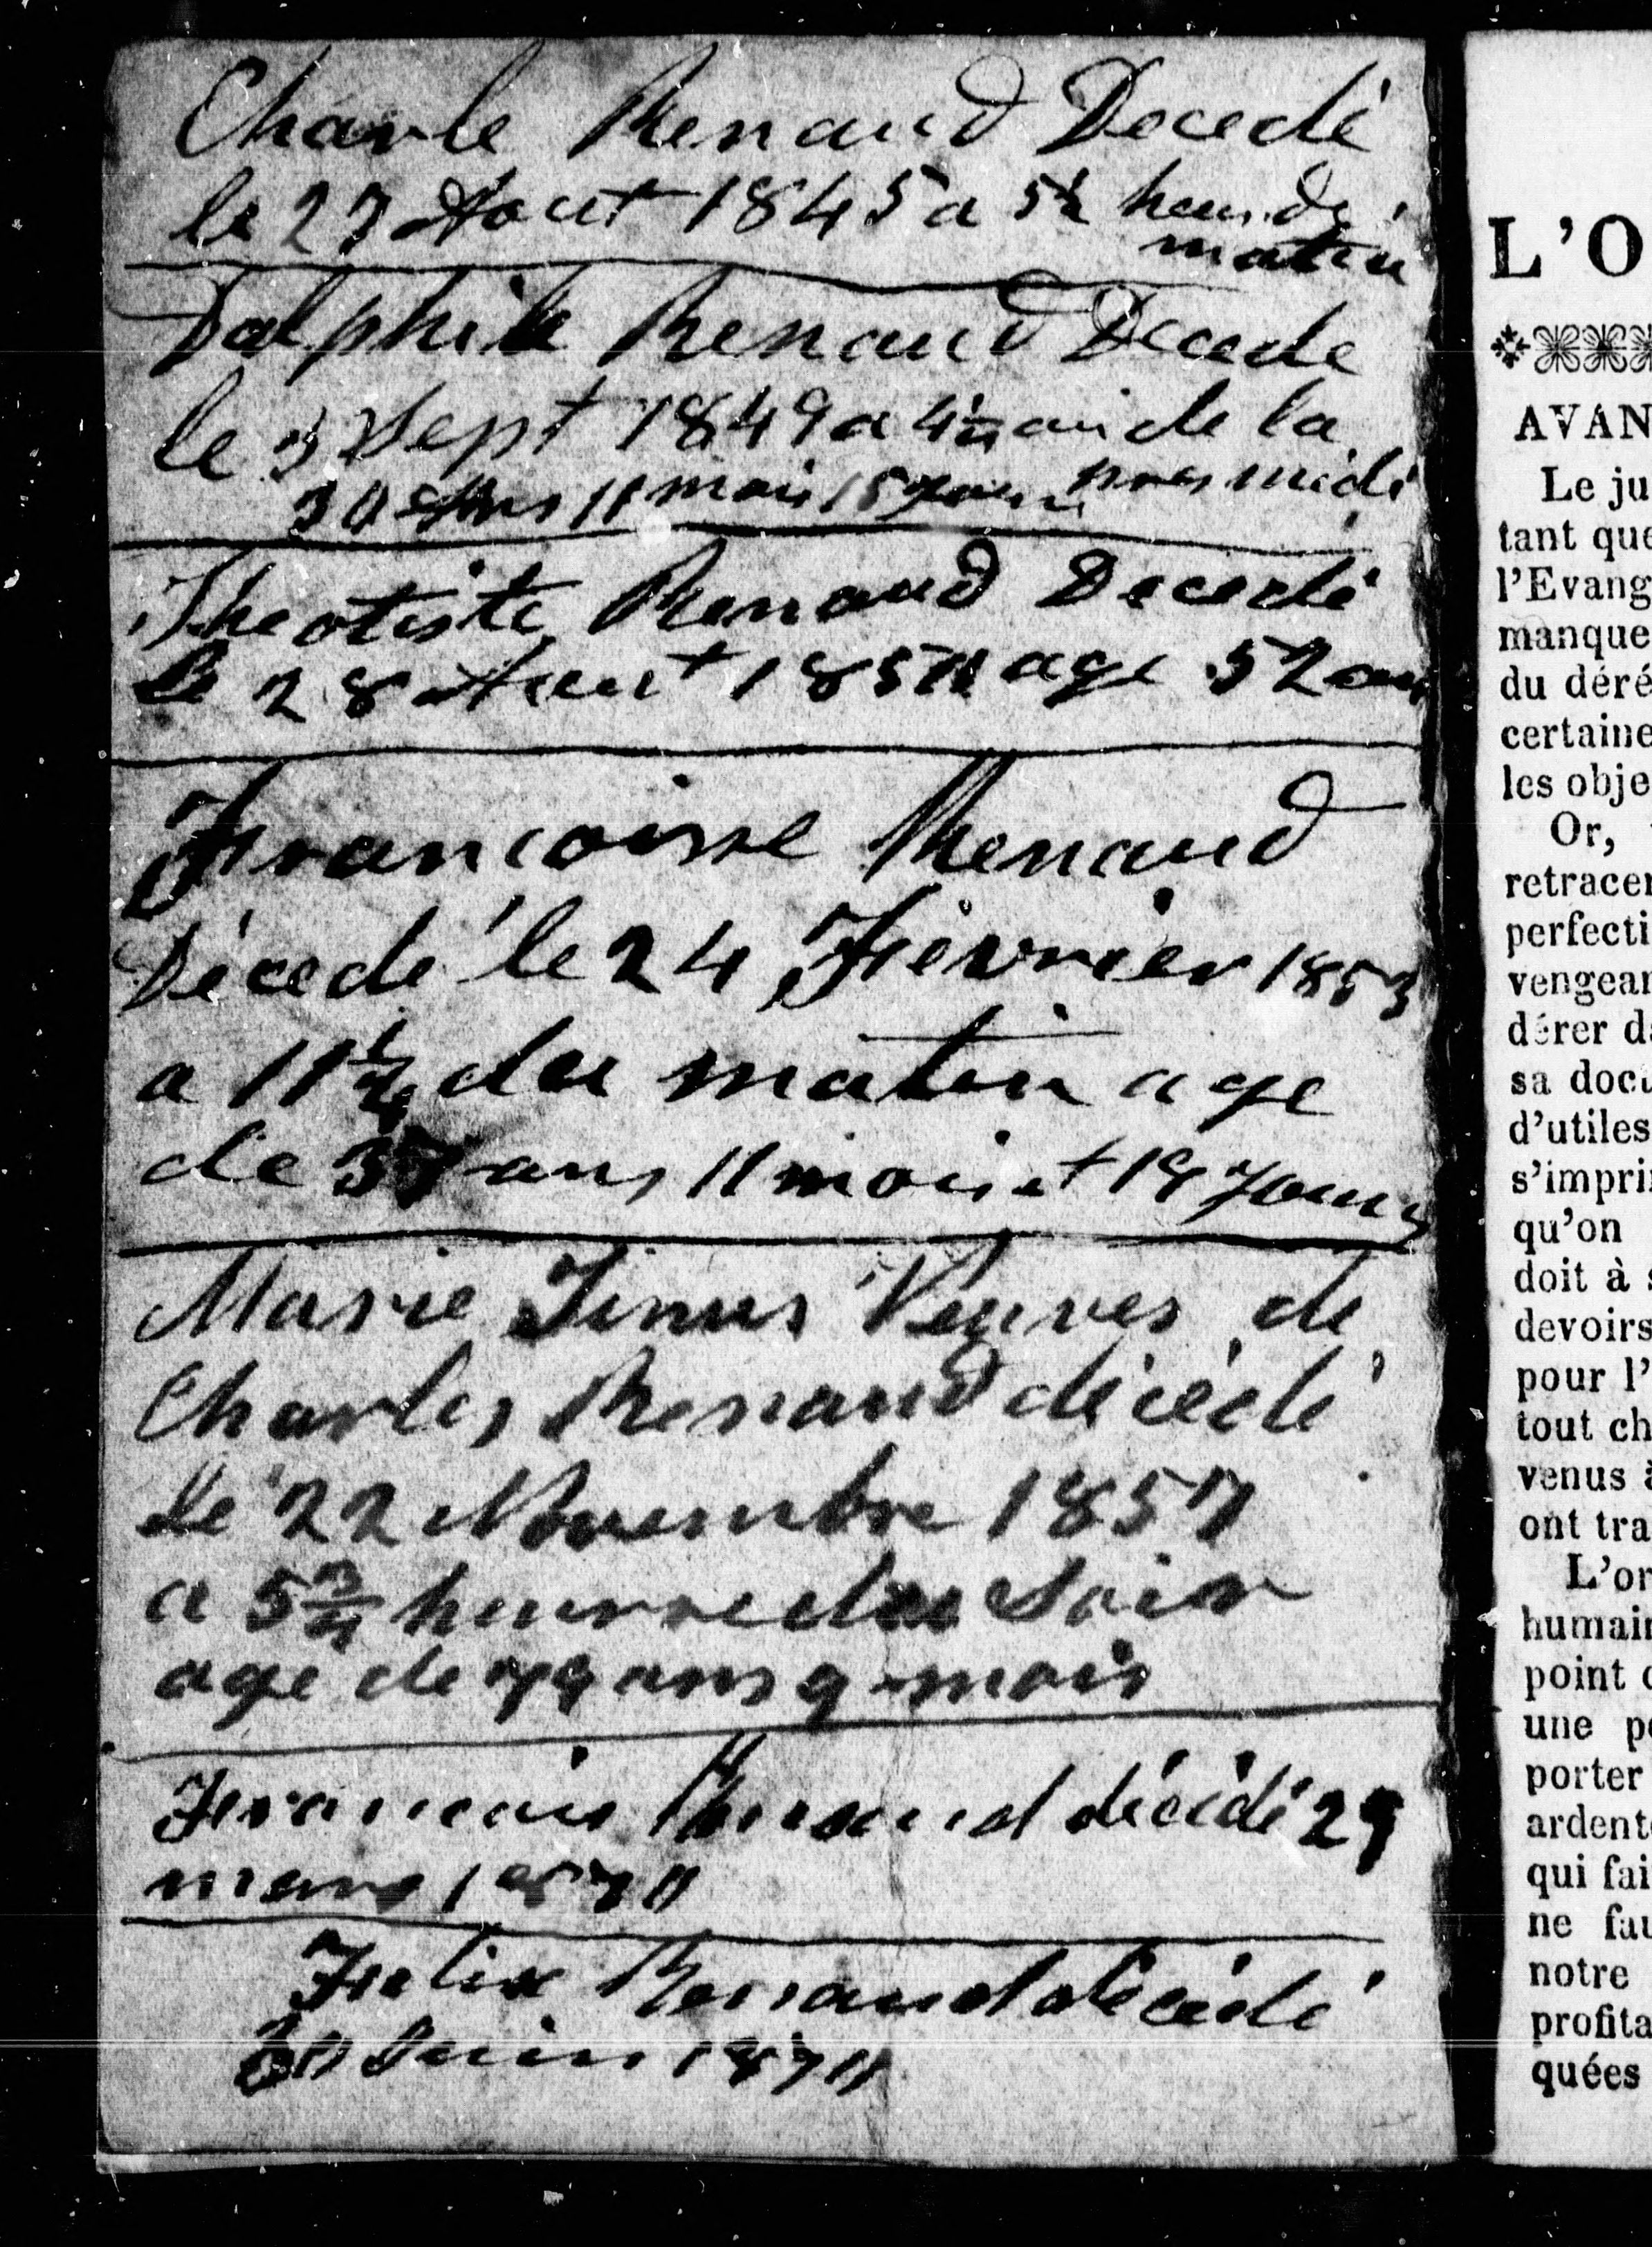 Charle Renaud Decedé
le 27 Aout 1845 a 5½ heur. du
matin
Dalphile Renaud Decede
le 3 Sept 1849 a 4½ de la
30 Ans 11 mois 15 Jours pres midi
Theotiste Renaud Decedé
Le 28 Aout age 52 ans
Francoisse Renaud
Décedé le 24 Fievrier 1853
a 11½ du matin age
de 37 ans 11 mois et 19 Jours
Marie Veuves de
Charles Renaud décédé
Le 22 Novembre 1857
a 5¾ heurre du Soir
agé de 79 ans 9 mois
Francois Renaud décédé 29
mars
Felix Renaud décédé
Juin
L'O
AVAN
Le ju
tant que
l'Evang
manque
du déré
certaine
les obje
Or,
retracer
perfecti
vengear
dérer d
sa doc
d'utiles
s'impri
qu'on
doit à
devoirs
pour l'
tout ch
venus
ont tra
L'or
humair
point
une p
porter
ardent
qui fai
ne fau
notre
profita
quées